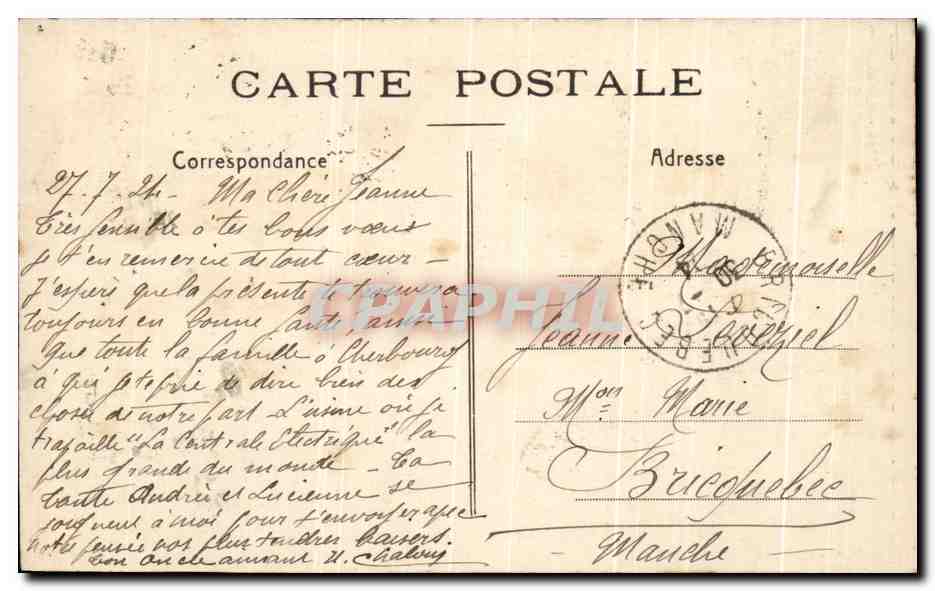 CARTE POSTALE
Correspondance
27.7.24 - Ma Chère Jeanne
Très sensible à tes bons vœux
je t'en remercie de tout cœur -
J'espère que la présente te trouvera
toujours en bonne santé ainsi
que toute la famille à Cherbourg
à qui je te prie de dire bien des
choses de notre part - L'usine où je
travaille "La Centrale Electrique" la
plus grande du monde - Ta
tante Andrée et Lucienne se
joignent à moi pour t'envoyer avec
notre pensée nos plus tendres baisers.
ton oncle aimant
Adresse
Mademoiselle
Jeanne
Mon Marie
Bricquebec
- Manche -
BRICQUEBEC
MANCHE
CPAPHIL